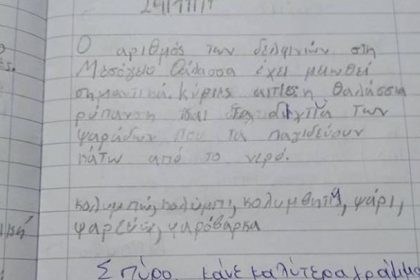 Ο αριθμός των δελφινιών στη
Μεσόγειο θάλασσα έχει μειωθεί
σημαντικά. Κύριες αιτίες η θαλάσσια
ρύπανση και τα δίχτυα των
ψαράδων που τα παγιδεύουν
κάτω από το νερό.
κολυμπώ, κολύμπι, κολυμβητής, ψάρι,
ψαρεύω, ψαρόβαρκα
Σπύρο κάνε καλύτερα γράμματα